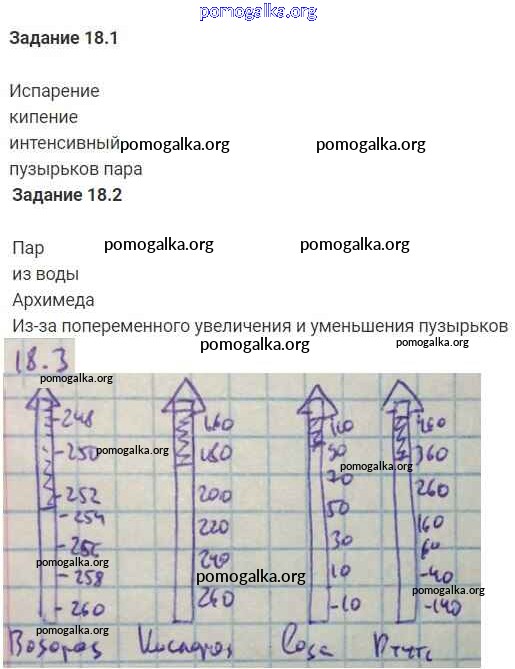 pomogalka.org
Задание 18.1
Испарение
кипение
интенсивный pomogalka.org pomogalka.org
пузырьков пара
Задание 18.2
Пар pomogalka.org pomogalka.org
из воды
Архимеда
Из-за попеременного увеличения и уменьшения пузырьков
pomogalka.org pomogalka.org
18.3
pomogalka.org
-248 160 110 460
-250 pomogalka.org 180 90 360
pomogalka.org
-252 200 70 260
-254 220 50 160
-256 240 30 60
pomogalka.org pomogalka.org pomogalka.org
-258 260 10 -40
-260 -10 -140
pomogalka.org
Водород Кислород Ртуть